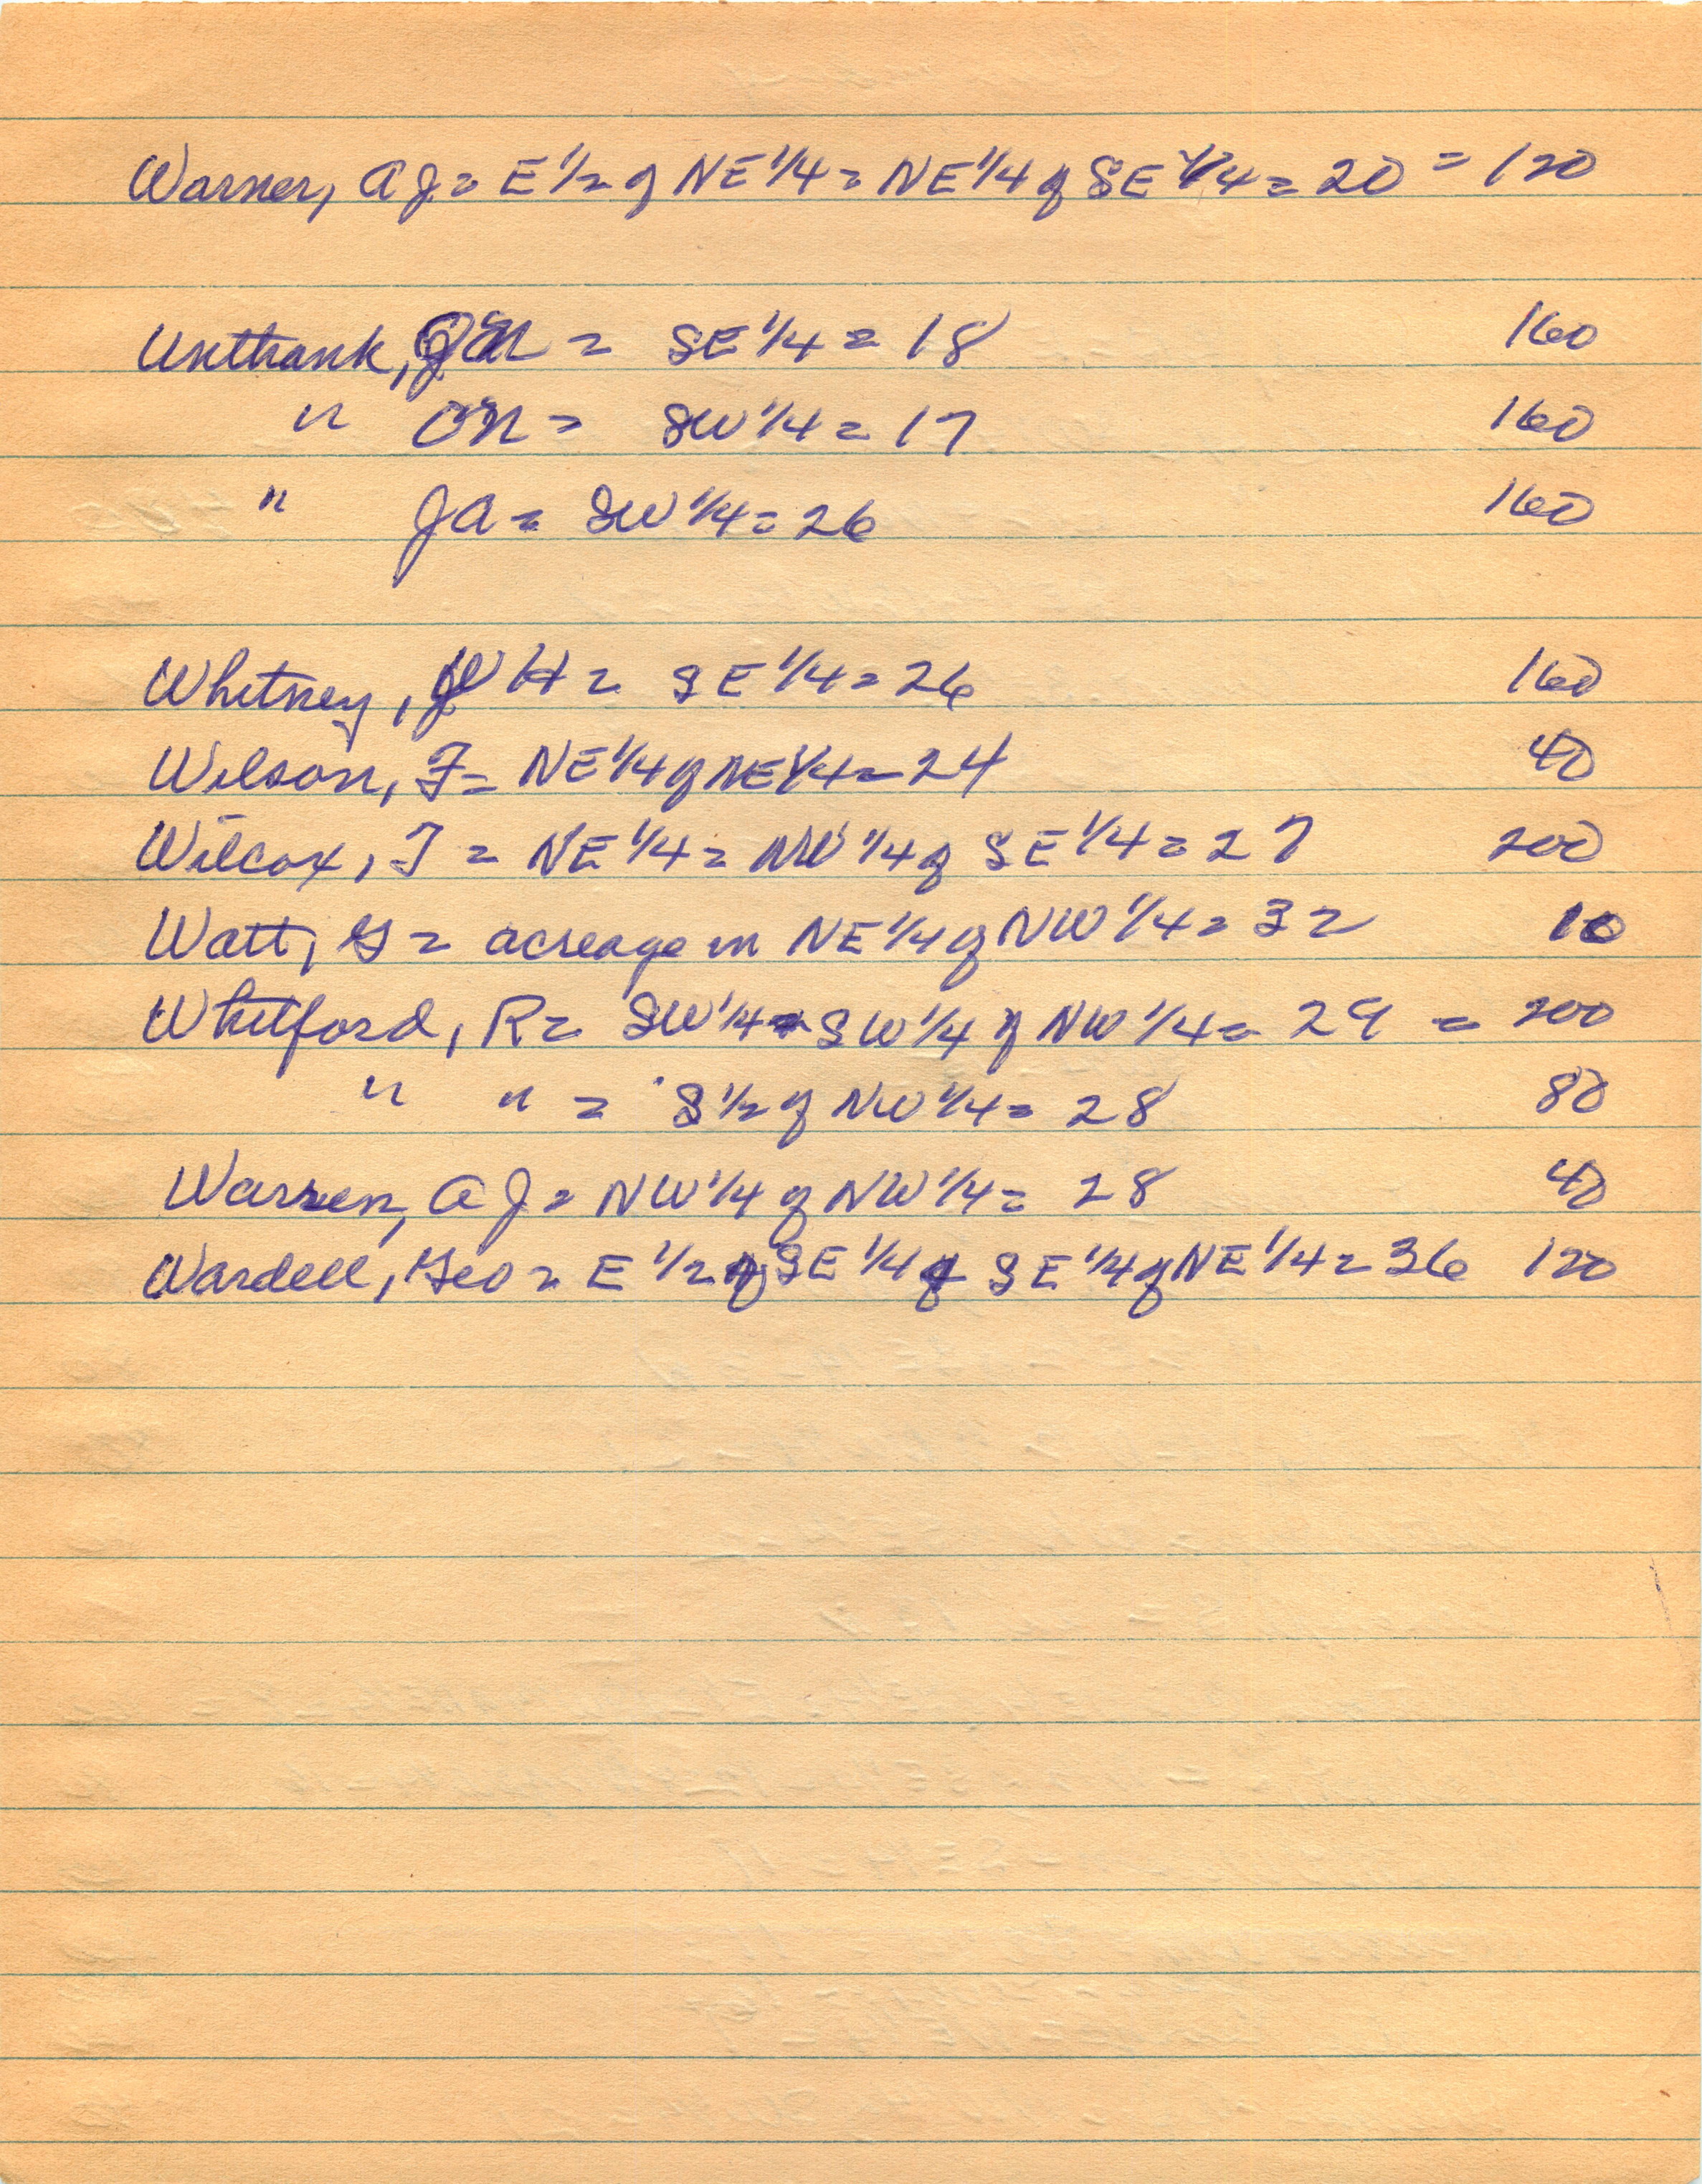 Warner, A J = E 1/2 of NE 1/4 = NE 1/4 of SE 1/4 = 20 = 120
Unthank, = SE 1/4 = 18 160
" ON = SW 1/4 = 17 160
" JA = SW 1/4 = 26 160
Whitney, W H = SE 1/4 = 26 160
Wilson, F = NE 1/4 of NE 1/4 = 24 40
Wilcox, T = NE 1/4 = NW 1/4 of SE 1/4 = 27 200
Watt, G = acreage in NE 1/4 of NW 1/4 = 32 10
Whitford, R = SW 1/4 = SW 1/4 of NW 1/4 = 29 = 200
" " = S 1/2 of NW 1/4 = 28 80
Warren, A J = NW 1/4 of NW 1/4 = 28 40
Wardell, Geo = E 1/2 of SE 1/4 SE 1/4 of NE 1/4 = 36 120